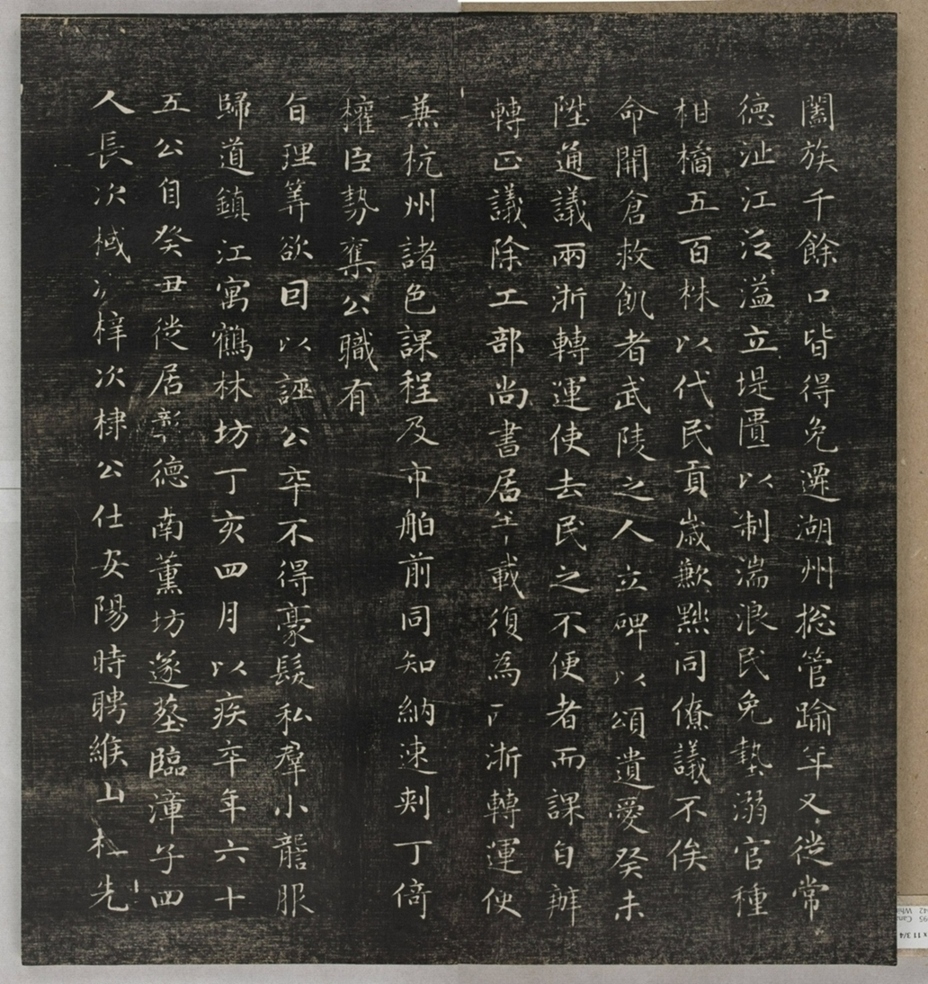 闔族千餘口皆得免遷湖州総管踰年又徙常
德沚江泛溢立堤匱以制湍浪民免墊溺官種
柑橘五百株以代民貢歲歉黙同僚議不俟
命開倉救飢者武陵之人立碑以頌遺愛癸未
陞通議兩浙轉運使去民之不便者而課自辦
轉正議除工部尚書居半載復為兩浙轉運使
兼杭州諸色課程及市舶前同知納速剌丁倚
權臣勢奪公職有
旨理筭欲因以誣公卒不得豪髮私羣小讋服
歸道鎮江寓鶴林坊丁亥四月以疾卒年六十
五公自癸丑徙居彰德南薰坊遂塟臨漳子四
人長次棫次梓次棣公仕安陽時聘緱山杜先